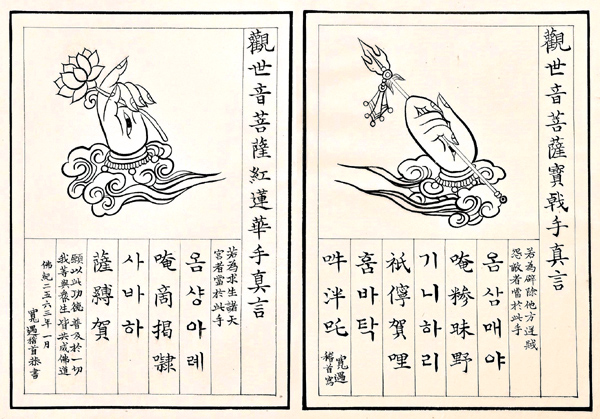 觀世音菩薩寶戟手真言
若為辟除他方逆賊
怨敵者當於此手
옴삼매야
唵糝昧野
기니하리
祇儜賀哩
훔바탁
吽泮吒
寬遇
稽首寫
觀世音菩薩紅蓮華手真言
若為求生諸天
宮者當於此手
옴샹아례
唵商揭㘑
사바하
薩縛賀
願以此功德普及於一切
我等與衆生皆共成佛道
佛紀二五六三年一月
寬遇稽首恭書